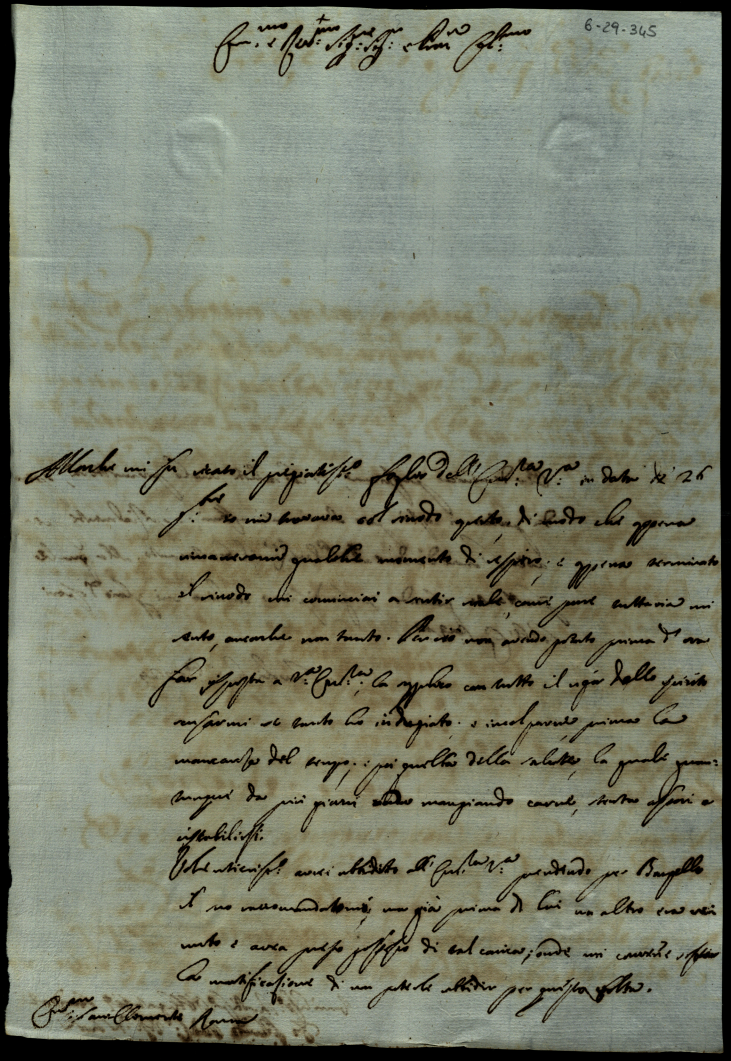 6-29-345
Em.mo e Rev.mo Sig.re Sig.r e Pron
Allorche mi fu recato il pregiatiss.o foglio dell' Em.za V.a in data de 26
io mi trovava col sinodo aperto, di modo che appena
rimanevami qualche momento di respiro; e appena terminato
il sinodo mi cominciai a sentir male, come pure tuttavia mi
sento, ancorche non tanto. Per ciò non avendo potuto prima d'ora
far risposta a V.a Em.za, la supplico con tutto il vigor dello spirito
scusarmi se tanto ho indugiato; e incolparne prima la
mancanza del tempo, e poi quella della salute, la quale quan-
tunque da più giorni vado mangiando carne, stenta assai a
ristabilirsi.
Volentieriss.o avrei ubbidito all' Em.za V.a prendendo per Bargello
il suo raccomandatomi, ma già prima di lui un altro era ve
nuto e avea preso possesso di tal carica; onde mi conviene
la mortificazione di non poterle ubbidir per questa volta.
Em.o San Clemente Roma